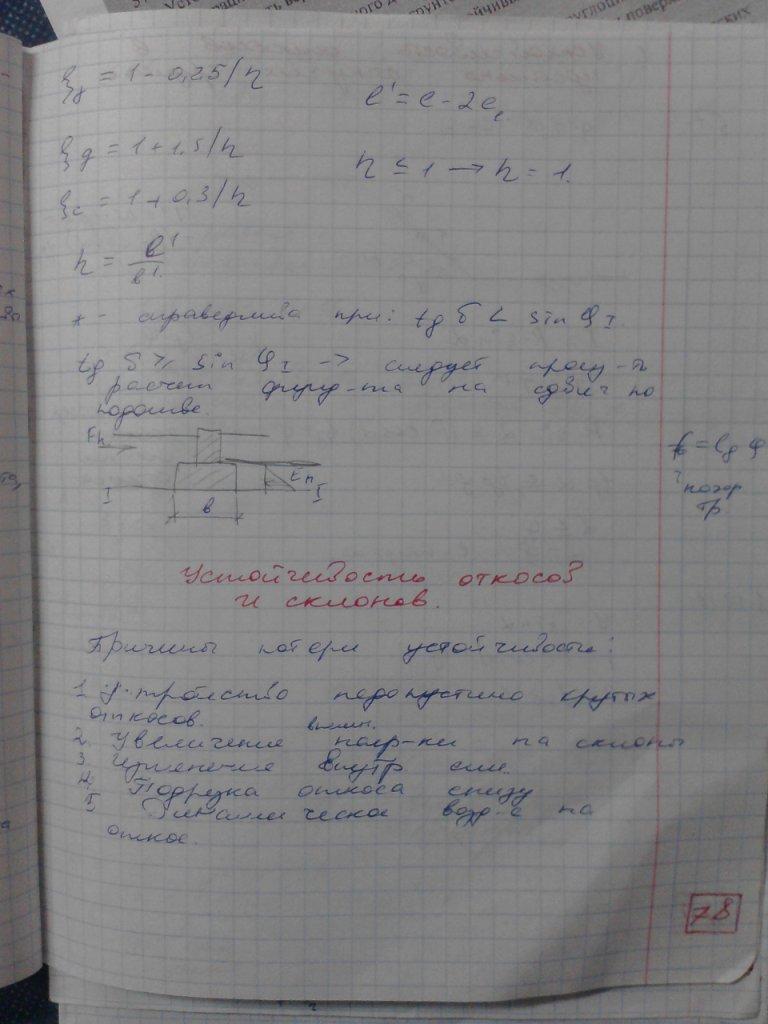 ξγ = 1 - 0,25/η
l' = l - 2eₑ
ξq = 1 + 1,5/η
η ≤ 1 → η = 1.
ξc = 1 + 0,3/η
η = l'/b'.
* - справедлива при: tg δ < sin φI.
tg δ ≥ sin φI → следует
расчет фунд-та на сдвиг по
подошве.
Eп
f = tg φ
I I
b
Устойчивость откосов
и склонов.
Причины потери устойчивости:
1. Устройство недопустимо крутых
откосов.
внешн.
2. Увеличение нагр-ки на склоны
3. Изменение внутр сил.
4. Подрезка откоса снизу
5. Динамическое возд-е на
откос.
78